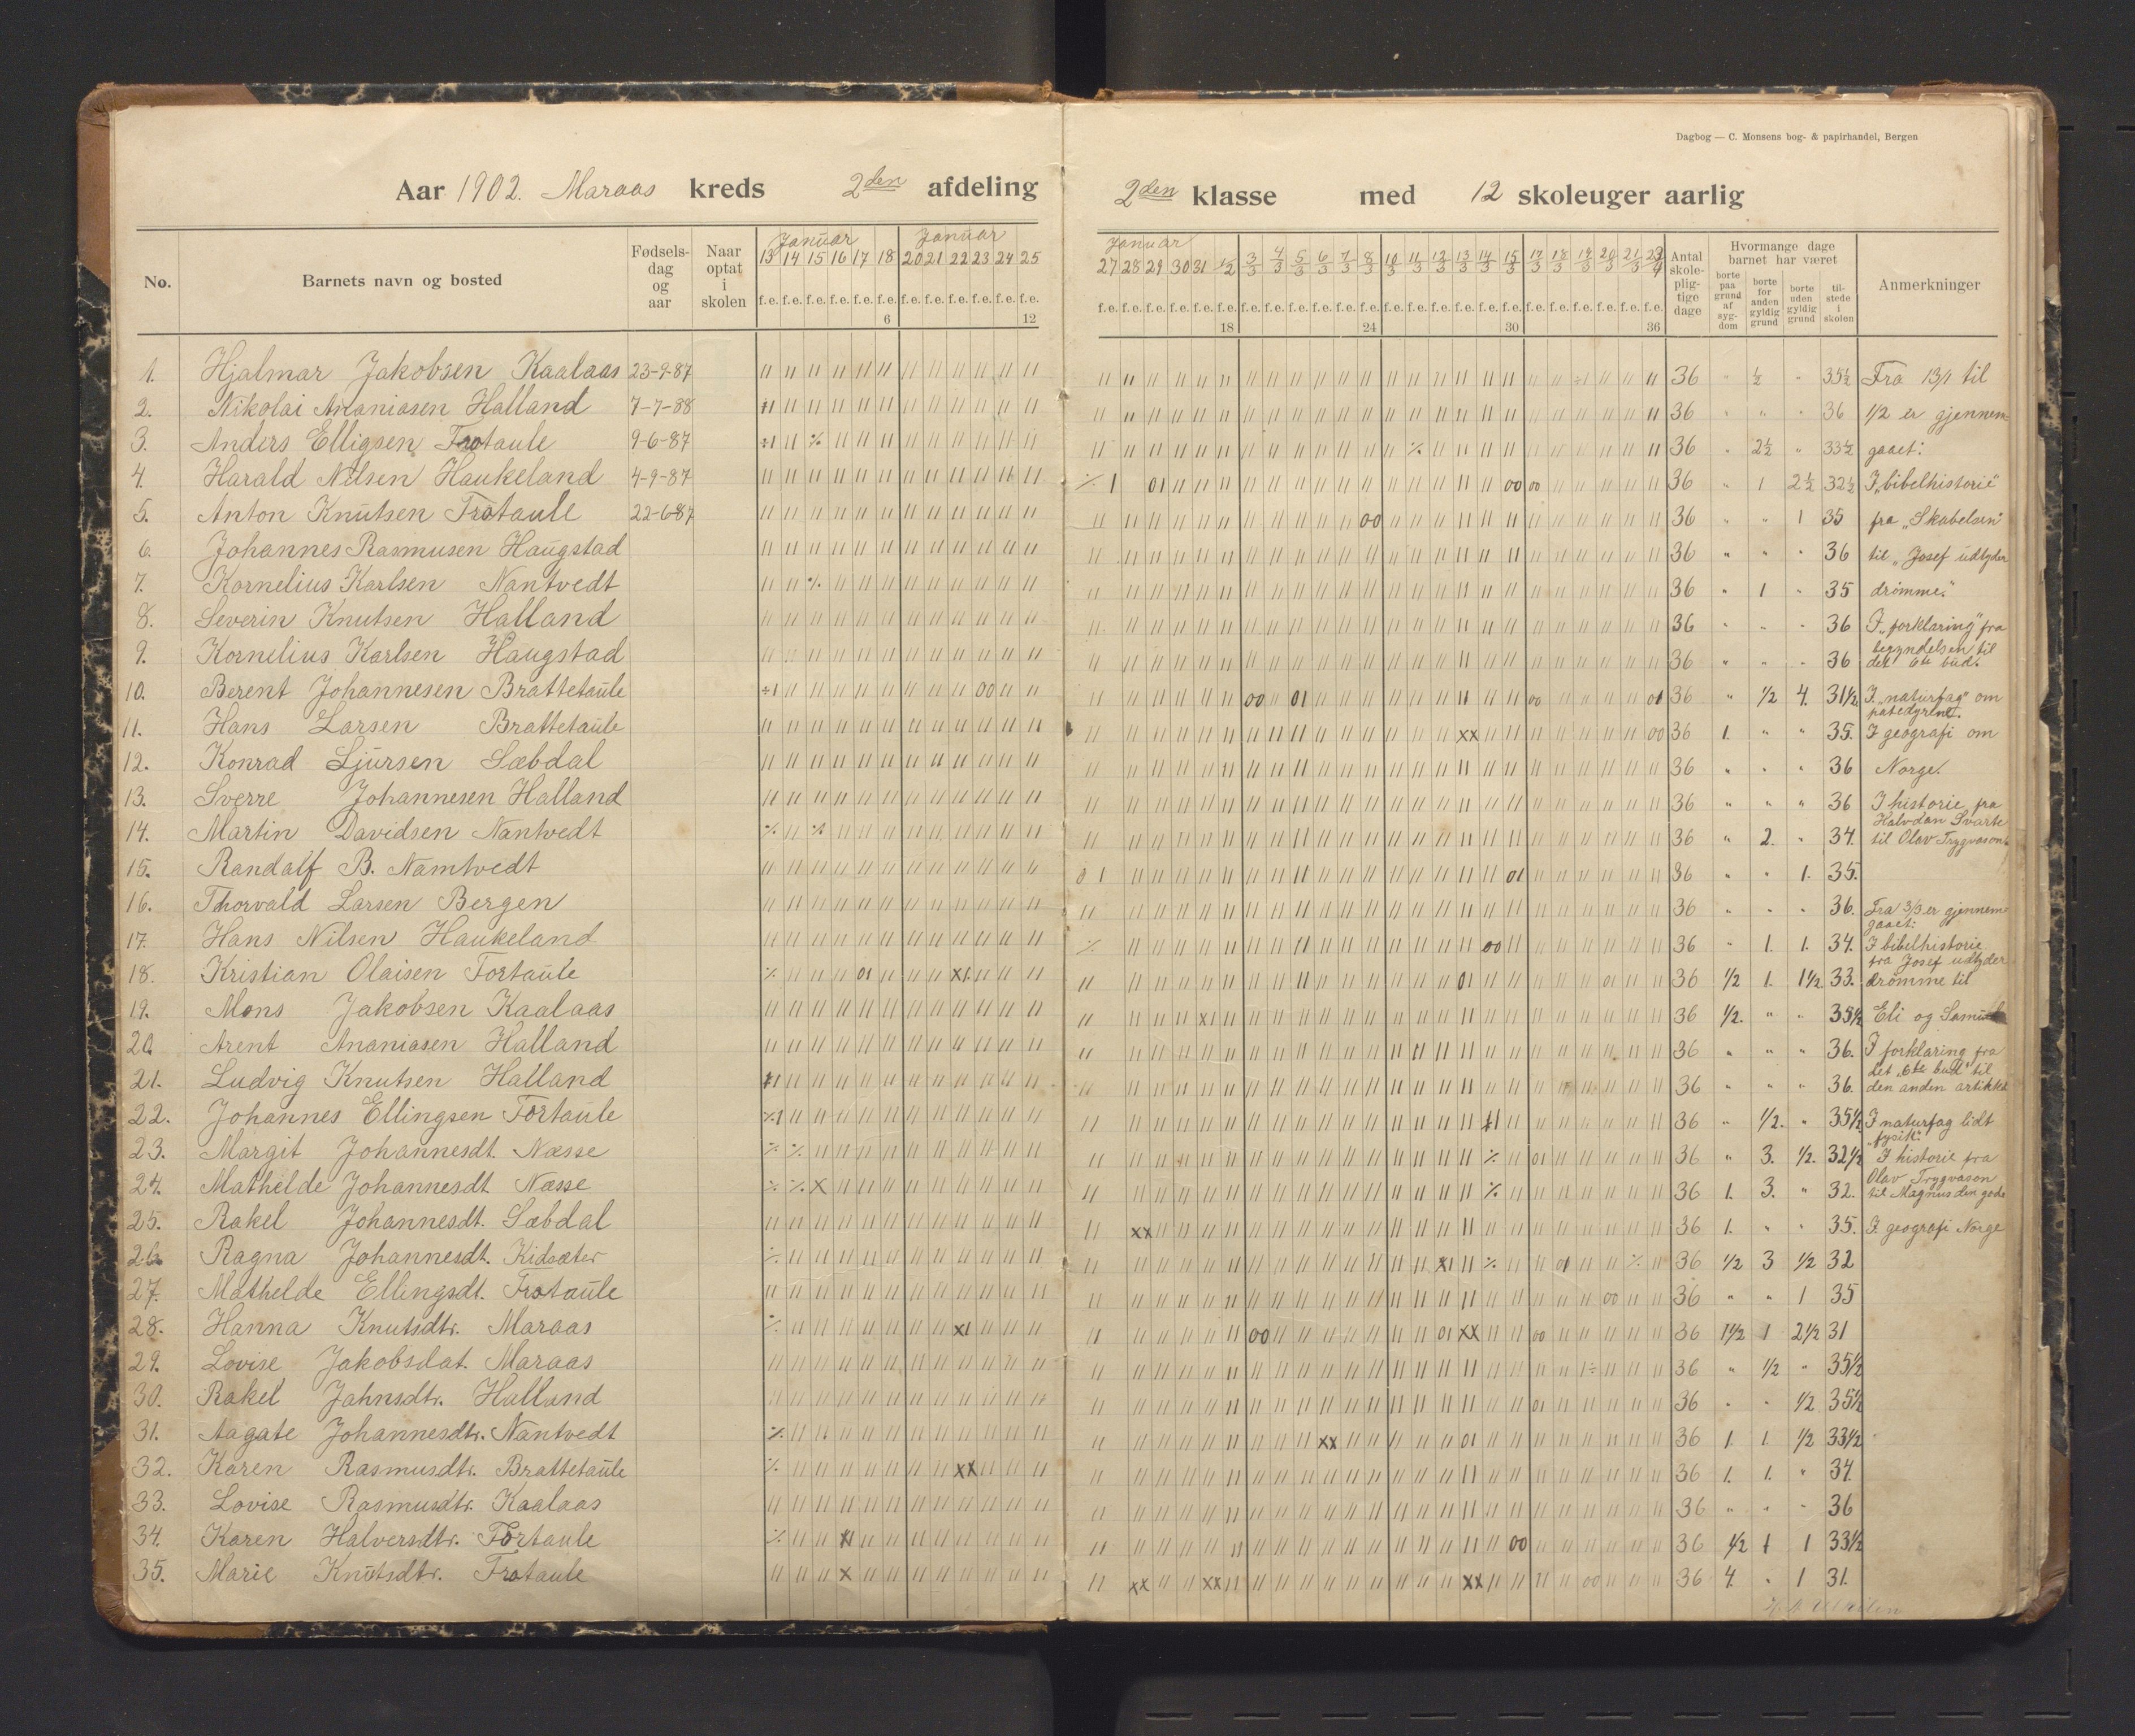 Dagbog — C. Monsens bog- & papirhandel, Bergen
Aar 1902. Maraas kreds 2den afdeling
2den klasse med 12 skoleuger aarlig
No. Barnets navn og bosted Fødsels-dag og aar Naar optat i skolen
Januar Januar
13 14 15 16 17 18 20 21 22 23 24 25
f.e. f.e. f.e. f.e. f.e. f.e. f.e. f.e. f.e. f.e. f.e. f.e.
6 12
Januar
27 28 29 30 31 1/2 3/3 4/3 5/3 6/3 7/3 8/3 10/3 11/3 12/3 13/3 14/3 15/3 17/3 18/3 19/3 20/3 21/3
f.e. f.e. f.e. f.e. f.e. f.e. f.e. f.e. f.e. f.e. f.e. f.e. f.e. f.e. f.e. f.e. f.e. f.e. f.e. f.e. f.e. f.e. f.e. f.e.
18 24 30 36
Antal skole-plig-tige dage
Hvormange dage barnet har været
borte paa grund af syg-dom
borte for anden gyldig grund
borte uden gyldig grund
til-stede i skolen
Anmerkninger
1. Hjalmar Jakobsen Kaalaas 23-9-87 36 " ½ " 35½ Fra 13/1 til
2. Nikolai Ananiasen Halland 7-7-88 36 " " " 36 1/2 er gjennem-
3. Anders Elligsen Frotaule 9-6-87 36 " 2½ " 33½ gaaet:
4. Harald Nilsen Haukeland 4-9-87 36 " 1 2½ 32½ I "bibelhistorie"
5. Anton Knutsen Frotaule 22-6-87 36 " " 1 35 fra "Skabelsen"
6. Johannes Rasmusen Haugstad 36 " " " 36 til "Josef udtyder
7. Kornelius Karlsen Nantvedt 36 " 1 " 35 drømme."
8. Severin Knutsen Halland 36 " " " 36 I "forklaring" fra
begyndelsen til
9. Kornelius Karlsen Haugstad 36 " " " 36 det 6te bud.
10. Berent Johannesen Brattetaule 36 " 1/2 4. 31½ I "naturfag" om
patedyrene.
11. Hans Larsen Brattetaule 36 1. " " 35. I geografi om
12. Konrad Sjursen Sæbdal 36 " " " 36 Norge.
13. Sverre Johannesen Halland 36 " " " 36 I historie fra
Halvdan Svarte
14. Martin Davidsen Nantvedt 36 " 2. " 34. til Olav Trygvason.
15. Randalf B. Namtvedt 36 " " 1. 35.
16. Thorvald Larsen Bergen 36 " " " 36. Fra 3/3 er gjennem-
gaaet:
17. Hans Nilsen Haukeland 36 " 1. 1. 34. I bibelhistorie
fra Josef udtyder
18. Kristian Olaisen Fortaule 36 1/2 1. 1½ 33. drømme til
19. Mons Jakobsen Kaalaas 36 1/2. " " 35½ Eli og Samuel
20. Arent Ananiasen Halland 36 " " " 36. I forklaring fra
det "6te bud" til
21. Ludvig Knutsen Halland 36 " " " 36. den anden artikkel
22. Johannes Ellingsen Fortaule 36 " 1/2. " 35½ I naturfag lidt
"fysik".
23. Margit Johannesdt. Næsse 36 " 3. 1/2. 32½ I historie fra
Olav Trygvason
24. Mathelde Johannesdt. Næsse 36 1. 3. " 32. til Magnus den gode
25. Rakel Johannesdt. Sæbdal 36 1. " " 35. I geografi Norge
26. Ragna Johannesdt. Kidsæter 36 1/2 3 1/2 32
27. Mathelde Ellingsdt. Frotaule 36 " " 1 35
28. Hanna Knutsdtr. Maraas 36 1½ 1 2½ 31
29. Lovise Jakobsdat. Maraas 36 " 1/2 " 35½
30. Rakel Jahnsdtr. Halland 36 " " 1/2 35½
31. Aagate Johannesdtr. Nantvedt 36 1. 1. 1/2 33½
32. Karen Rasmusdtr. Brattetaule 36 1. 1. " 34.
33. Lovise Rasmusdtr. Kaalaas 36 " " " 36
34. Karen Halversdtr. Fortaule 36 1/2 1 1 33½
35. Marie Knutsdtr. Frotaule 36 4. " 1 31.